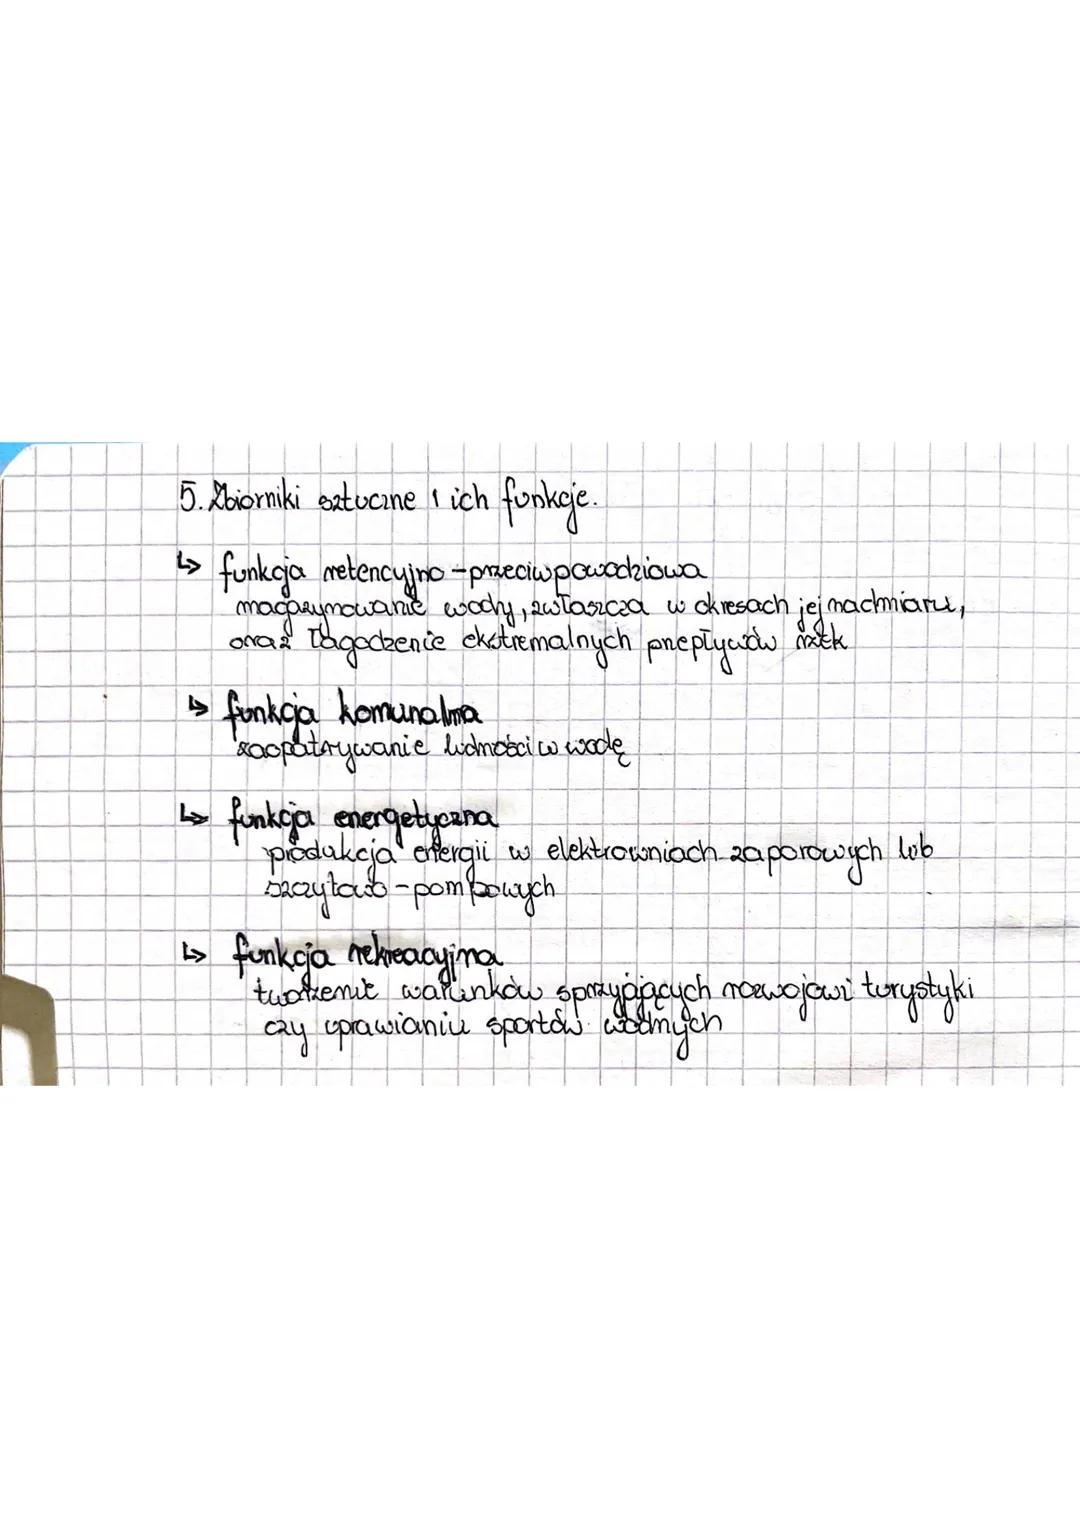 5. Zbiorniki sztuczne i ich funkcje.
↳ funkcja retencyjno-przeciwpowodziowa
magazynowanie wody, zwłaszcza w okresach jej nadmiaru,
oraz łagodzenie ekstremalnych przepływów rzek
↳ funkcja komunalna
zaopatrywanie ludności w wodę
↳ funkcja energetyczna
produkcja energii w elektrowniach zaporowych lub
szczytowo-pompowych
↳ funkcja rekreacyjna
tworzenie warunków sprzyjających rozwojowi turystyki
czy uprawianiu sportów wodnych